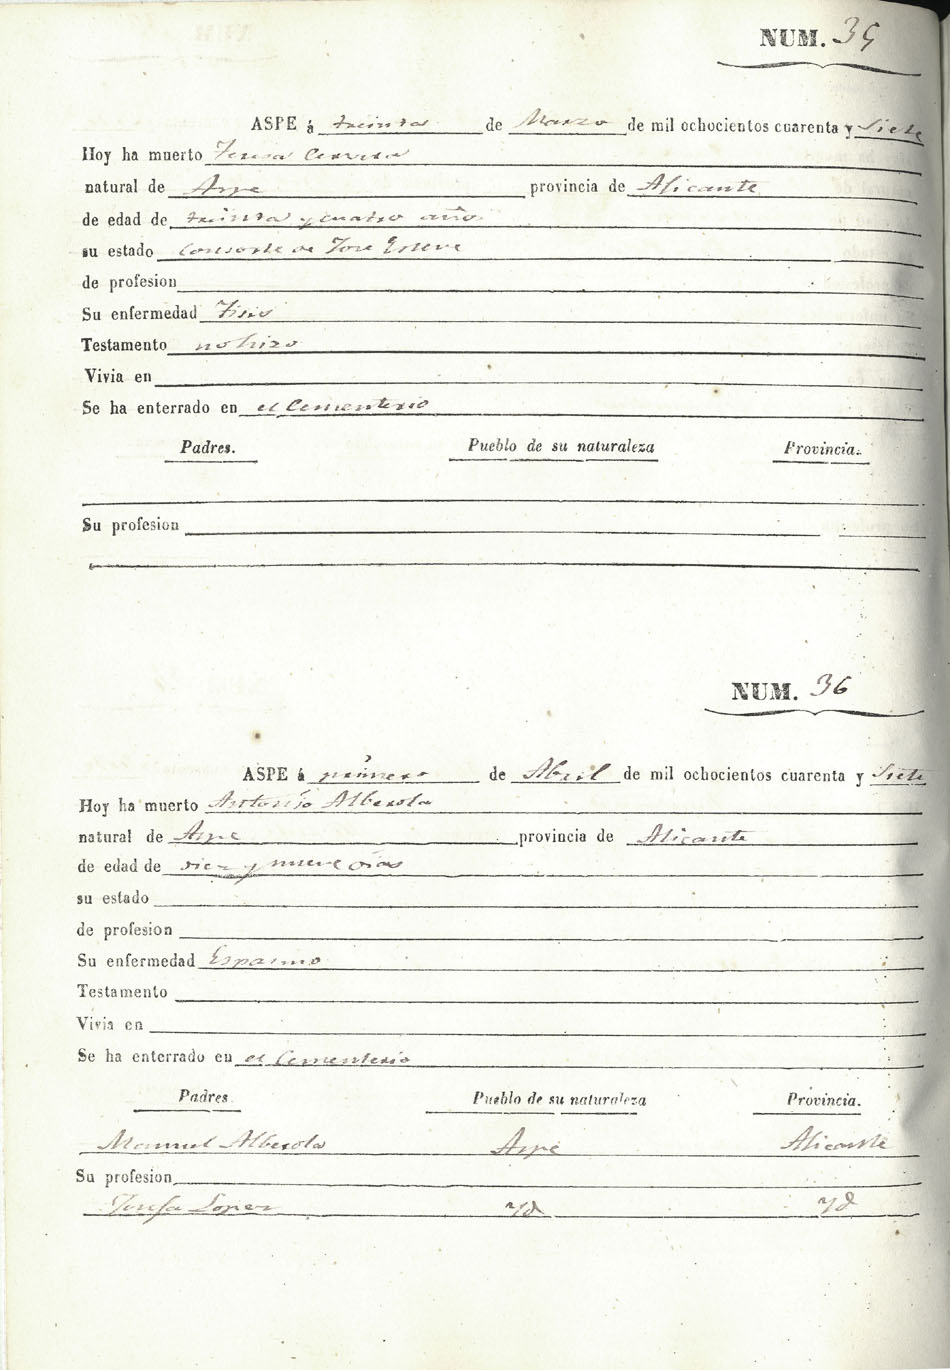 NUM. 35
ASPE á treinta de Marzo de mil ochocientos cuarenta y Siete
Hoy ha muerto Teresa Cervera
natural de Aspe provincia de Alicante
de edad de treinta y cuatro años
su estado Consorte de Jose Esteve
de profesion
Su enfermedad Tisis
Testamento no hizo
Vivia en
Se ha enterrado en el Cementerio
Padres. Pueblo de su naturaleza Provincia.
Su profesion
NUM. 36
ASPE á primero de Abril de mil ochocientos cuarenta y Siete
Hoy ha muerto Antonio Alberola
natural de Aspe provincia de Alicante
de edad de diez y nueve dias
su estado
de profesion
Su enfermedad Espasmo
Testamento
Vivia en
Se ha enterrado en el Cementerio
Padres. Pueblo de su naturaleza Provincia.
Manuel Alberola Aspe Alicante
Su profesion
Teresa Lopez Yd Yd